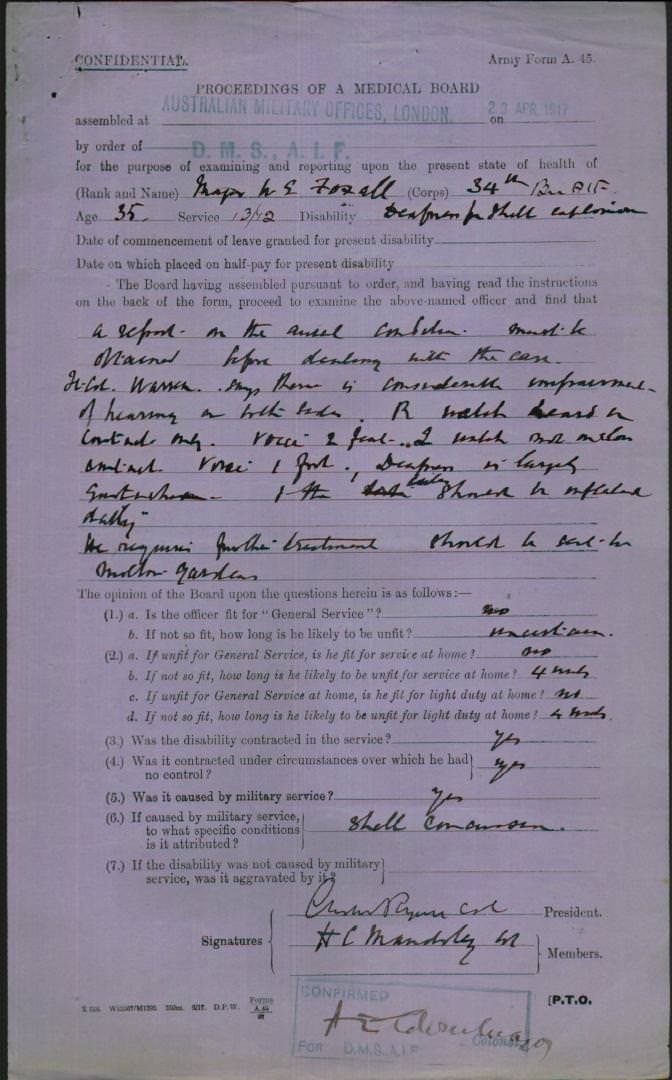 CONFIDENTIAL.
Army Form A. 45.
PROCEEDINGS OF A MEDICAL BOARD
assembled at AUSTRALIAN MILITARY OFFICES, LONDON. on 23 APR 1917
by order of D. M. S., A. I. F.
for the purpose of examining and reporting upon the present state of health of
(Rank and Name) Major W E Foxall (Corps) 34th Bn AIF.
Age 35. Service 13/12 Disability Deafness fr Shell explosion
Date of commencement of leave granted for present disability
Date on which placed on half-pay for present disability
The Board having assembled pursuant to order, and having read the instructions
on the back of the form, proceed to examine the above-named officer and find that
a report on the aural condition must be
obtained before dealing with the case.
Lt Col. Warren says there is considerable impairment
of hearing on both sides. R watch heard on
contact only. Voice 2 feet. L watch not on
contact. Voice 1 foot. Deafness is largely
the should be inflated
daily"
He requires further treatment should be sent to
Gardens
The opinion of the Board upon the questions herein is as follows:—
(1.) a. Is the officer fit for "General Service"? no
b. If not so fit, how long is he likely to be unfit? uncertain.
(2.) a. If unfit for General Service, is he fit for service at home? no
b. If not so fit, how long is he likely to be unfit for service at home? 4 wks
c. If unfit for General Service at home, is he fit for light duty at home? no
d. If not so fit, how long is he likely to be unfit for light duty at home? 4 wks.
(3.) Was the disability contracted in the service? yes
(4.) Was it contracted under circumstances over which he had
no control? yes
(5.) Was it caused by military service? yes
(6.) If caused by military service,
to what specific conditions
is it attributed? Shell concussion.
(7.) If the disability was not caused by military
service, was it aggravated by it?
Signatures
Col President.
H C Maudsley Col
Members.
Forms
A. 45
[P.T.O.
CONFIRMED
Colonel
FOR D.M.S. A.I.F